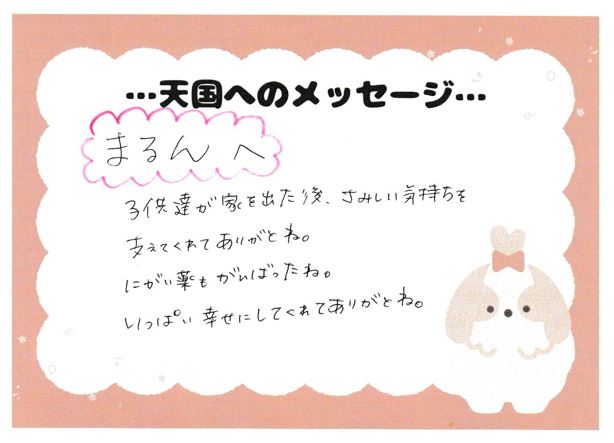 …天国へのメッセージ…
まるんへ
子供達が家を出た後、さみしい気持ちを
支えてくれてありがとね。
にがい薬もがんばったね。
いっぱい幸せにしてくれてありがとね。